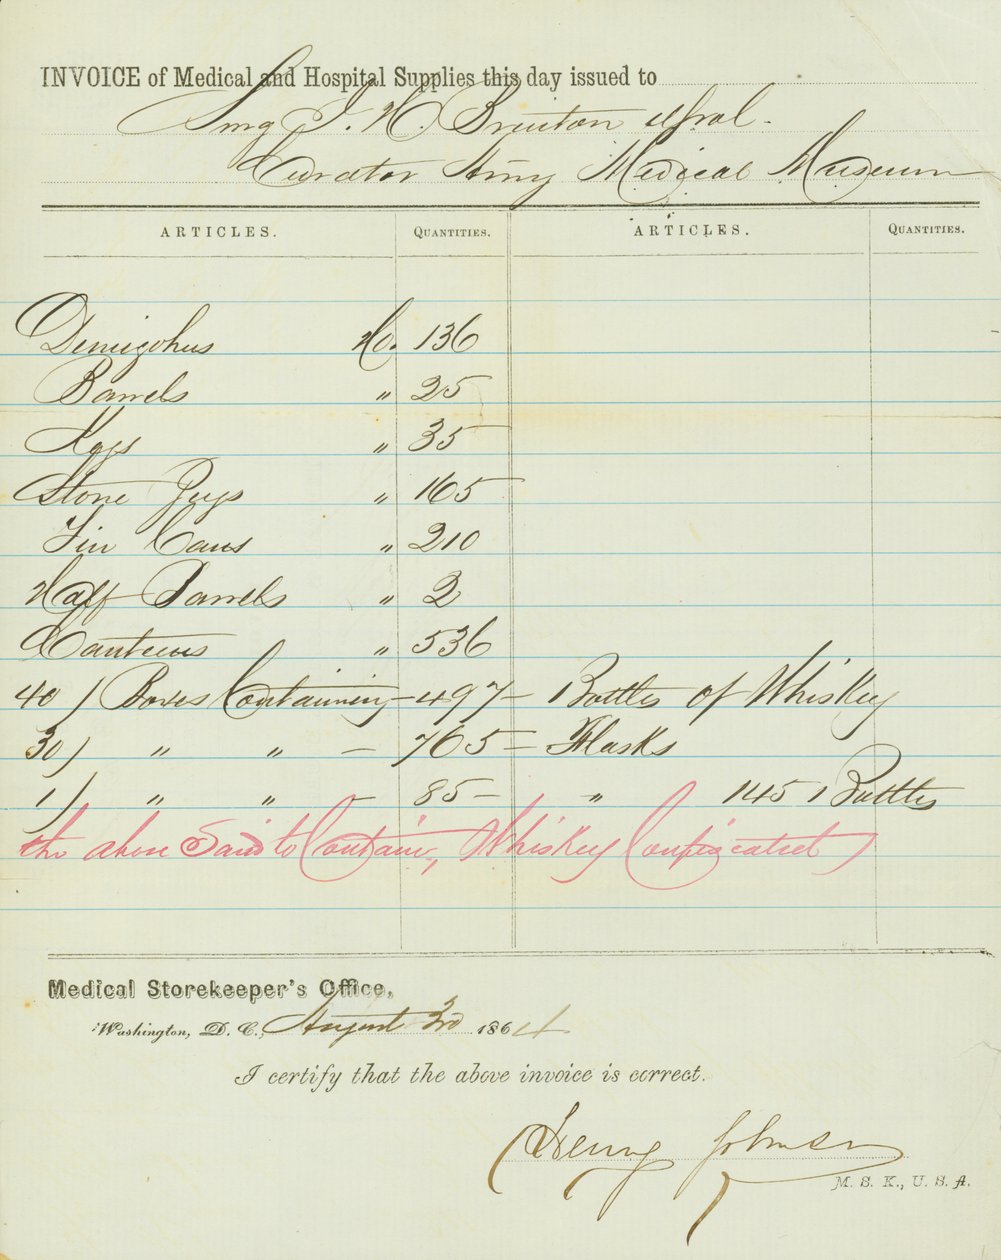 INVOICE of Medical and Hospital Supplies this day issued to
Surg J. H. Brinton U.S. Vol.
Curator Army Medical Museum
ARTICLES. QUANTITIES. ARTICLES. QUANTITIES.
Demijohns No. 136
Barrels " 25
Kegs " 35
Stone Jugs " 165
Tin Cans " 210
Half Barrels " 2
Canteens " 536
40) Boxes Containing - 497 - Bottles of Whiskey
30) " " - 765 - Flasks
1) " " - 85 - " 1451 Bottles
the above Said to Contain, Whiskey Confiscated)
Medical Storekeeper's Office,
Washington, D. C., August 3rd 1864
I certify that the above invoice is correct.
Henry Johnson
M. S. K., U. S. A.